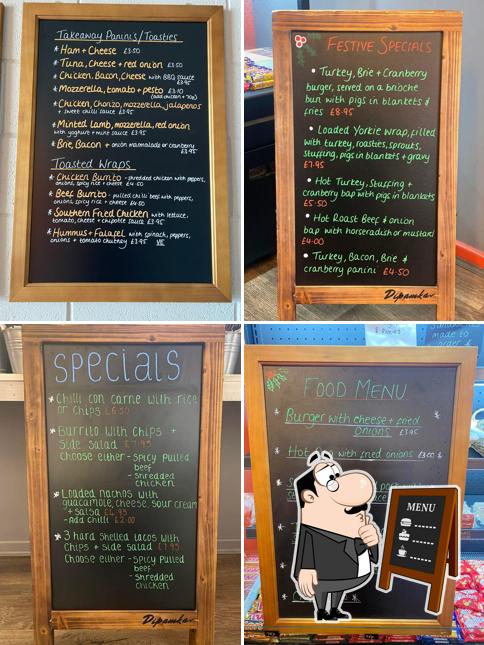 Takeaway Panini's/Toasties
* Ham + Cheese £3.50
* Tuna, Cheese + red onion £3.50
* Chicken, Bacon, Cheese with BBQ sauce
£3.95
* Mozzerella, tomato + pesto £3.10
(add chicken + 70p)
* Chicken, Chorizo, mozzerella, jalapenos
+ sweet chilli sauce £3.95
* Minted lamb, mozzerella, red onion
with yoghurt + mint sauce £3.95
* Brie, Bacon + onion marmalade or cranberry
£3.95
Toasted Wraps
* Chicken Burrito - shredded chicken with peppers,
onions, spicy rice + cheese £4.50
* Beef Burrito - pulled chilli beef with peppers,
onions, spicy rice + cheese £4.50
* Southern Fried Chicken with lettuce,
tomato, cheese + chipotle sauce £3.95
* Hummus + Falafel with spinach, peppers,
onions + tomato chutney £3.95 VE
Festive Specials
• Turkey, Brie + Cranberry
burger, served on a brioche
bun with pigs in blankets &
fries £8.95
• Loaded Yorkie Wrap, filled
with turkey, roasties, sprouts,
stuffing, pigs in blankets + gravy
£7.95
• Hot Turkey, Stuffing +
cranberry bap with pigs in blankets
£5.50
• Hot Roast Beef & onion
bap with horseradish or mustard
£4.00
• Turkey, Bacon, Brie &
cranberry panini £4.50
Dipamkar
Specials
* Chilli con carne with rice
or chips £6.50
* Burrito with chips +
side salad £7.95
Choose either - spicy pulled
beef
- shredded
chicken
* Loaded nachos with
guacamole, cheese, sour cream
+ salsa £6.95
- add chilli £2.00
* 3 hard shelled tacos with
chips + side salad £7.95
Choose either - spicy pulled
beef
- shredded
chicken
Dipamkar
sandwiches
made to
order &
Food Menu
* Burger with cheese + fried
onions £3.95
* Hot with fried onions £3.00
MENU